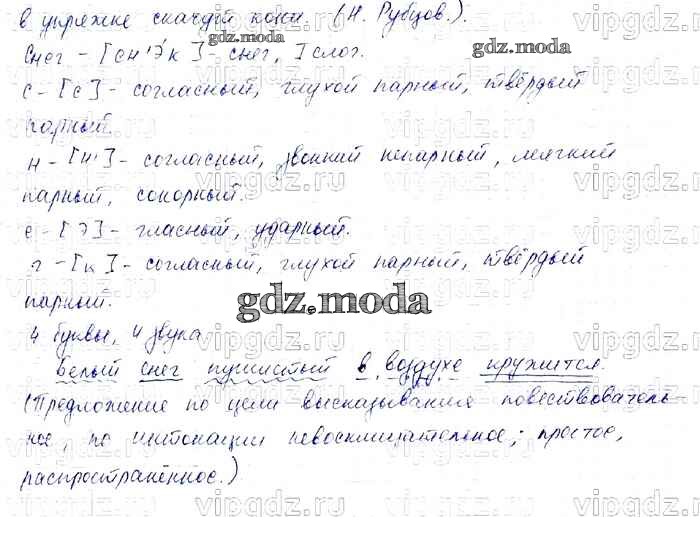 в упряжке скачут кони. (Н. Рубцов.).
Снег – [сн'э́к] – снег, 1 слог.
с – [с] – согласный, глухой парный, твёрдый
парный.
н – [н'] – согласный, звонкий непарный, мягкий
парный, сонорный.
е – [э] – гласный, ударный.
г – [к] – согласный, глухой парный, твёрдый
парный.
4 буквы, 4 звука
Белый снег пушистый в воздухе кружится.
(Предложение по цели высказывания повествователь-
ное, по интонации невосклицательное; простое,
распространённое.)
gdz.moda
gdz.moda
gdz.moda
vipgdz.ru